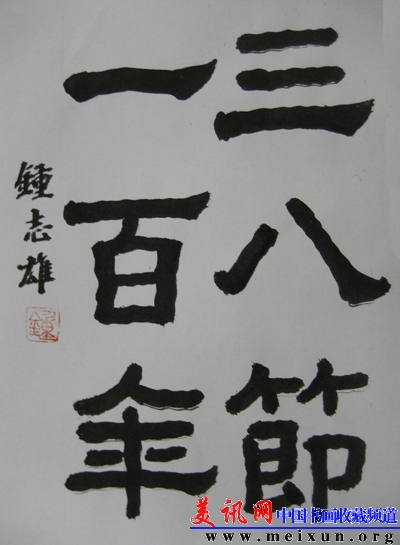 三八節
一百年
鍾志雄
美讯网 中国书画收藏频道
www.meixun.org